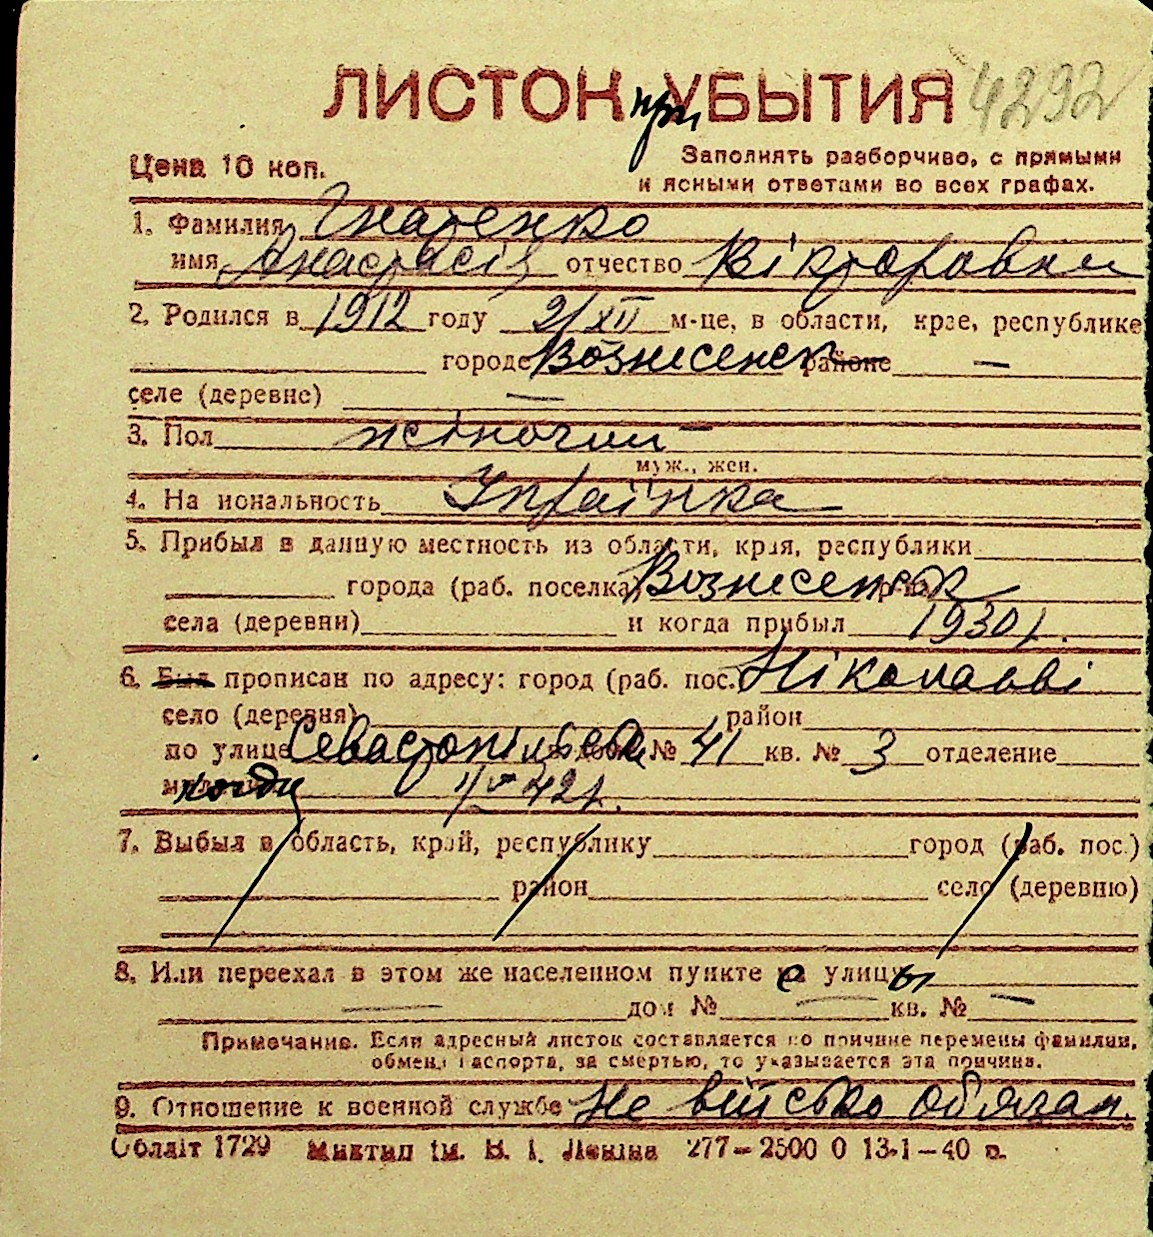 ЛИСТОК при УБЫТИЯ 4292
Цена 10 коп. Заполнять разборчиво, с прямыми
и ясными ответами во всех графах.
1. Фамилия Гнатенко
имя Анастасія отчество Вікторовни
2. Родился в 1912 году 2/XII м-це, в области, крае, республике
городе Вознесенск районе —
селе (деревне) —
3. Пол жіночий —
муж., жен.
4. На иональность Украінка
5. Прибыл в данную местность из области, края, республики
города (раб. поселка) Вознесенск р-на
села (деревни) и когда прибыл 1930 г.
6. Был прописан по адресу: город (раб. пос.) Ніколаєві
село (деревня) район
по улице Севастопільска № 41 кв. № 3 отделение
когда 1/V 42 г.
7. Выбыл в область, край, республику город (раб. пос.)
район село (деревню)
8. Или переехал в этом же населенном пункте с улицы
— дом № — кв. № —
Примечание. Если адресный листок составляется по причине перемены фамилии,
обмена паспорта, за смертью, то указывается эта причина.
9. Отношение к военной службе Не військо обязан.
Облліт 1729 Миктип ім. В. І. Леніна 277—2500 0 13-1—40 р.